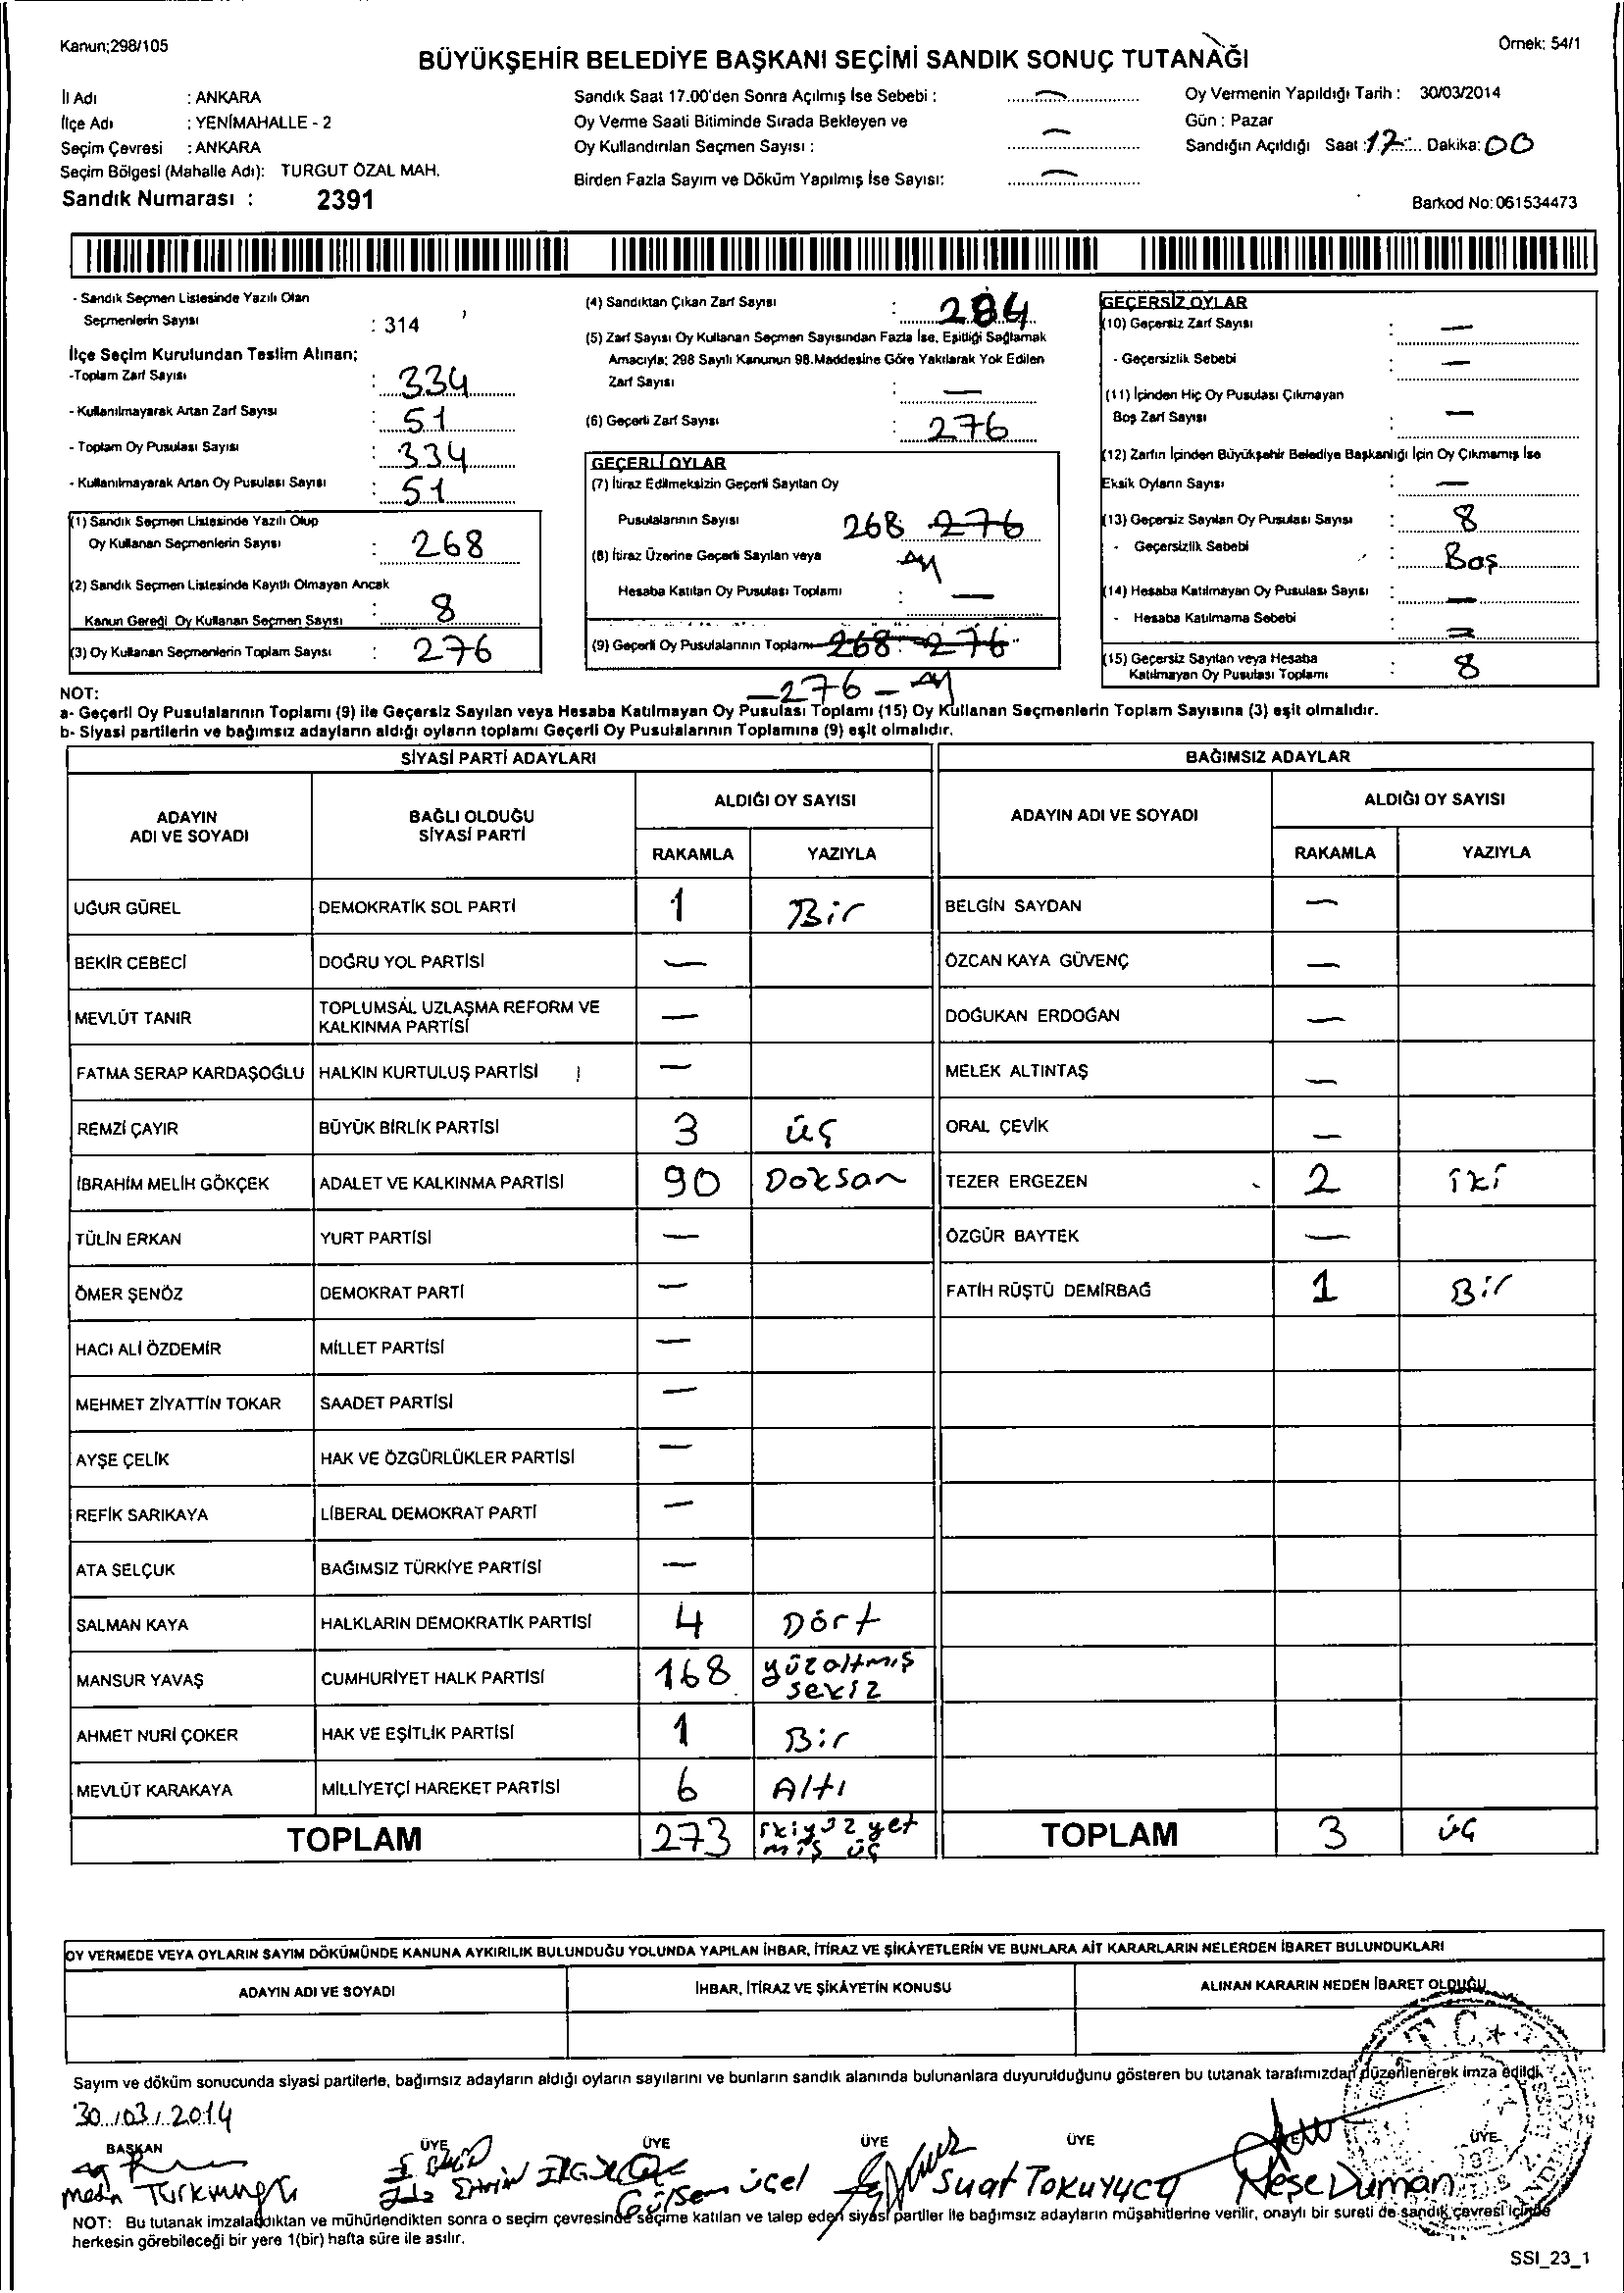 Kanun;298/105
Örnek: 54/1
BÜYÜKŞEHİR BELEDİYE BAŞKANI SEÇİMİ SANDIK SONUÇ TUTANAĞI
İl Adı : ANKARA
İlçe Adı : YENİMAHALLE - 2
Seçim Çevresi : ANKARA
Seçim Bölgesi (Mahalle Adı): TURGUT ÖZAL MAH.
Sandık Numarası : 2391
Sandık Saat 17.00'den Sonra Açılmış İse Sebebi : —
Oy Verme Saati Bitiminde Sırada Bekleyen ve
Oy Kullandırılan Seçmen Sayısı : —
Birden Fazla Sayım ve Döküm Yapılmış İse Sayısı: —
Oy Vermenin Yapıldığı Tarih : 30/03/2014
Gün : Pazar
Sandığın Açıldığı Saat : 17 Dakika: 00
Barkod No: 061534473
- Sandık Seçmen Listesinde Yazılı Olan
Seçmenlerin Sayısı : 314
İlçe Seçim Kurulundan Teslim Alınan;
-Toplam Zarf Sayısı : 334
- Kullanılmayarak Artan Zarf Sayısı : 51
- Toplam Oy Pusulası Sayısı : 334
- Kullanılmayarak Artan Oy Pusulası Sayısı : 51
(1) Sandık Seçmen Listesinde Yazılı Olup
Oy Kullanan Seçmenlerin Sayısı : 268
(2) Sandık Seçmen Listesinde Kayıtlı Olmayan Ancak
Kanun Gereği Oy Kullanan Seçmen Sayısı : 8
(3) Oy Kullanan Seçmenlerin Toplam Sayısı : 276
(4) Sandıktan Çıkan Zarf Sayısı : 284
(5) Zarf Sayısı Oy Kullanan Seçmen Sayısından Fazla İse, Eşitliği Sağlamak
Amacıyla; 298 Sayılı Kanunun 98.Maddesine Göre Yakılarak Yok Edilen
Zarf Sayısı : —
(6) Geçerli Zarf Sayısı : 276
GEÇERLİ OYLAR
(7) İtiraz Edilmeksizin Geçerli Sayılan Oy
Pusulalarının Sayısı 268 276
(8) İtiraz Üzerine Geçerli Sayılan veya
Hesaba Katılan Oy Pusulası Toplamı : —
(9) Geçerli Oy Pusulalarının Toplamı 268 276
— 276 —
GEÇERSİZ OYLAR
(10) Geçersiz Zarf Sayısı : —
- Geçersizlik Sebebi : —
(11) İçinden Hiç Oy Pusulası Çıkmayan
Boş Zarf Sayısı : —
(12) Zarfın İçinden Büyükşehir Belediye Başkanlığı İçin Oy Çıkmamış İse
Eksik Oyların Sayısı : —
(13) Geçersiz Sayılan Oy Pusulası Sayısı : 8
- Geçersizlik Sebebi : Boş
(14) Hesaba Katılmayan Oy Pusulası Sayısı : —
- Hesaba Katılmama Sebebi : —
(15) Geçersiz Sayılan veya Hesaba
Katılmayan Oy Pusulası Toplamı : 8
NOT:
a- Geçerli Oy Pusulalarının Toplamı (9) ile Geçersiz Sayılan veya Hesaba Katılmayan Oy Pusulası Toplamı (15) Oy Kullanan Seçmenlerin Toplam Sayısına (3) eşit olmalıdır.
b- Siyasi partilerin ve bağımsız adayların aldığı oyların toplamı Geçerli Oy Pusulalarının Toplamına (9) eşit olmalıdır.
SİYASİ PARTİ ADAYLARI
ADAYIN
ADI VE SOYADI
BAĞLI OLDUĞU
SİYASİ PARTİ
ALDIĞI OY SAYISI
RAKAMLA YAZIYLA
UĞUR GÜREL DEMOKRATİK SOL PARTİ 1 Bir
BEKİR CEBECİ DOĞRU YOL PARTİSİ —
MEVLÜT TANIR TOPLUMSAL UZLAŞMA REFORM VE
KALKINMA PARTİSİ —
FATMA SERAP KARDAŞOĞLU HALKIN KURTULUŞ PARTİSİ —
REMZİ ÇAYIR BÜYÜK BİRLİK PARTİSİ 3 üç
İBRAHİM MELİH GÖKÇEK ADALET VE KALKINMA PARTİSİ 90 Doksan
TÜLİN ERKAN YURT PARTİSİ —
ÖMER ŞENÖZ DEMOKRAT PARTİ —
HACI ALİ ÖZDEMİR MİLLET PARTİSİ —
MEHMET ZİYATTİN TOKAR SAADET PARTİSİ —
AYŞE ÇELİK HAK VE ÖZGÜRLÜKLER PARTİSİ —
REFİK SARIKAYA LİBERAL DEMOKRAT PARTİ —
ATA SELÇUK BAĞIMSIZ TÜRKİYE PARTİSİ —
SALMAN KAYA HALKLARIN DEMOKRATİK PARTİSİ 4 Dört
MANSUR YAVAŞ CUMHURİYET HALK PARTİSİ 168 yüzaltmış
sekiz
AHMET NURİ ÇOKER HAK VE EŞİTLİK PARTİSİ 1 Bir
MEVLÜT KARAKAYA MİLLİYETÇİ HAREKET PARTİSİ 6 Altı
TOPLAM 273 ikiyüz yet
miş üç
BAĞIMSIZ ADAYLAR
ADAYIN ADI VE SOYADI
ALDIĞI OY SAYISI
RAKAMLA YAZIYLA
BELGİN SAYDAN —
ÖZCAN KAYA GÜVENÇ —
DOĞUKAN ERDOĞAN —
MELEK ALTINTAŞ —
ORAL ÇEVİK —
TEZER ERGEZEN 2 iki
ÖZGÜR BAYTEK —
FATİH RÜŞTÜ DEMİRBAĞ 1 Bir
TOPLAM 3 üç
OY VERMEDE VEYA OYLARIN SAYIM DÖKÜMÜNDE KANUNA AYKIRILIK BULUNDUĞU YOLUNDA YAPILAN İHBAR, İTİRAZ VE ŞİKÂYETLERİN VE BUNLARA AİT KARARLARIN NELERDEN İBARET BULUNDUKLARI
ADAYIN ADI VE SOYADI
İHBAR, İTİRAZ VE ŞİKÂYETİN KONUSU
ALINAN KARARIN NEDEN İBARET OLDUĞU
Sayım ve döküm sonucunda siyasi partilerle, bağımsız adayların aldığı oyların sayılarını ve bunların sandık alanında bulunanlara duyurulduğunu gösteren bu tutanak tarafımızdan düzenlenerek imza edildi.
30/03/2014
BAŞKAN ÜYE ÜYE ÜYE ÜYE ÜYE
Gülsen üçel Suat Tokuyucu Neşe Duman
NOT: Bu tutanak imzalandıktan ve mühürlendikten sonra o seçim çevresinde seçime katılan ve talep eden siyasi partiler ile bağımsız adayların müşahitlerine verilir, onaylı bir sureti de sandık çevresi içinde
herkesin görebileceği bir yere 1(bir) hafta süre ile asılır.
SSI_23_1